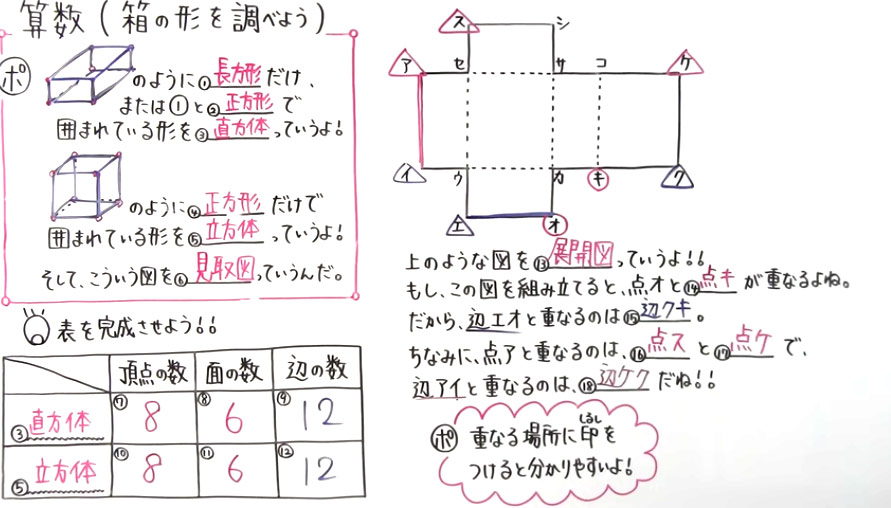 算数(箱の形を調べよう)
ポ
のように①長方形だけ、
または①と②正方形で
囲まれている形を③直方体っていうよ!
のように④正方形だけで
囲まれている形を⑤立方体っていうよ!
そして、こういう図を⑥見取図っていうんだ。
表を完成させよう!!
頂点の数 面の数 辺の数
③直方体 ⑦8 ⑧6 ⑨12
⑤立方体 ⑩8 ⑪6 ⑫12
ス シ
ア セ サ コ ケ
イ ウ カ キ ク
エ オ
上のような図を⑬展開図っていうよ!!
もし、この図を組み立てると、点オと⑭点キが重なるよね。
だから、辺エオと重なるのは⑮辺クキ。
ちなみに、点アと重なるのは、⑯点スと⑰点ケで、
辺アイと重なるのは、⑱辺ケクだね!!
ポ 重なる場所に印をしるし
つけると分かりやすいよ!